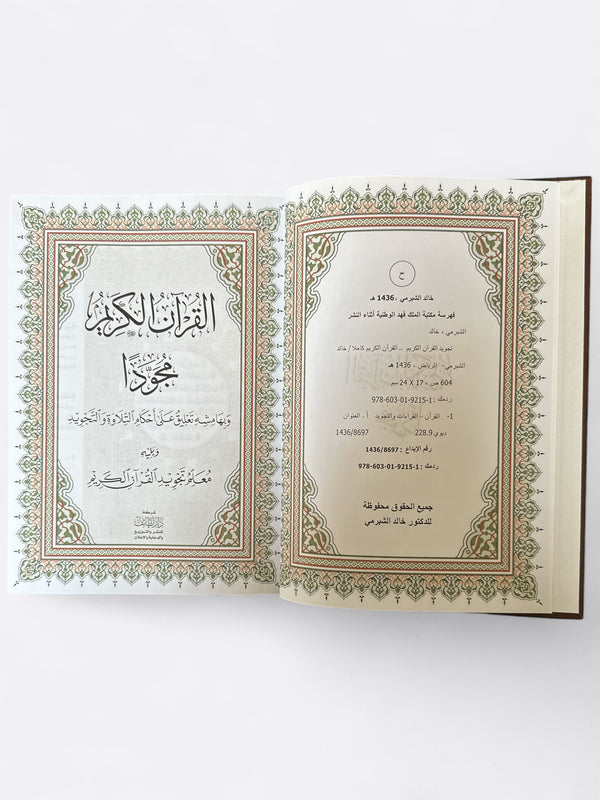 ح
خالد الشيرمي ، 1436 هـ
فهرسة مكتبة الملك فهد الوطنية أثناء النشر
الشيرمي ، خالد
تجويد القران الكريم – القرآن الكريم كاملا./ خالد
الشيرمي- الرياض ، 1436 هـ
604 ص ، 17 X 24 سم
ردمك : 1-9215-01-603-978
1- القرآن – القراءات والتجويد أ . العنوان
ديوي 228.9 1436/8697
رقم الإيداع : 1436/8697
ردمك : 1-9215-01-603-978
جميع الحقوق محفوظة
للدكتور خالد الشيرمي
القرآن الكريم
مجودا
وبهامشه تعليق على أحكام التلاوة والتجويد
ويليه
معلم تجويد القرآن الكريم
شركة
للنشر والتوزيع
والدعاية والإعلان